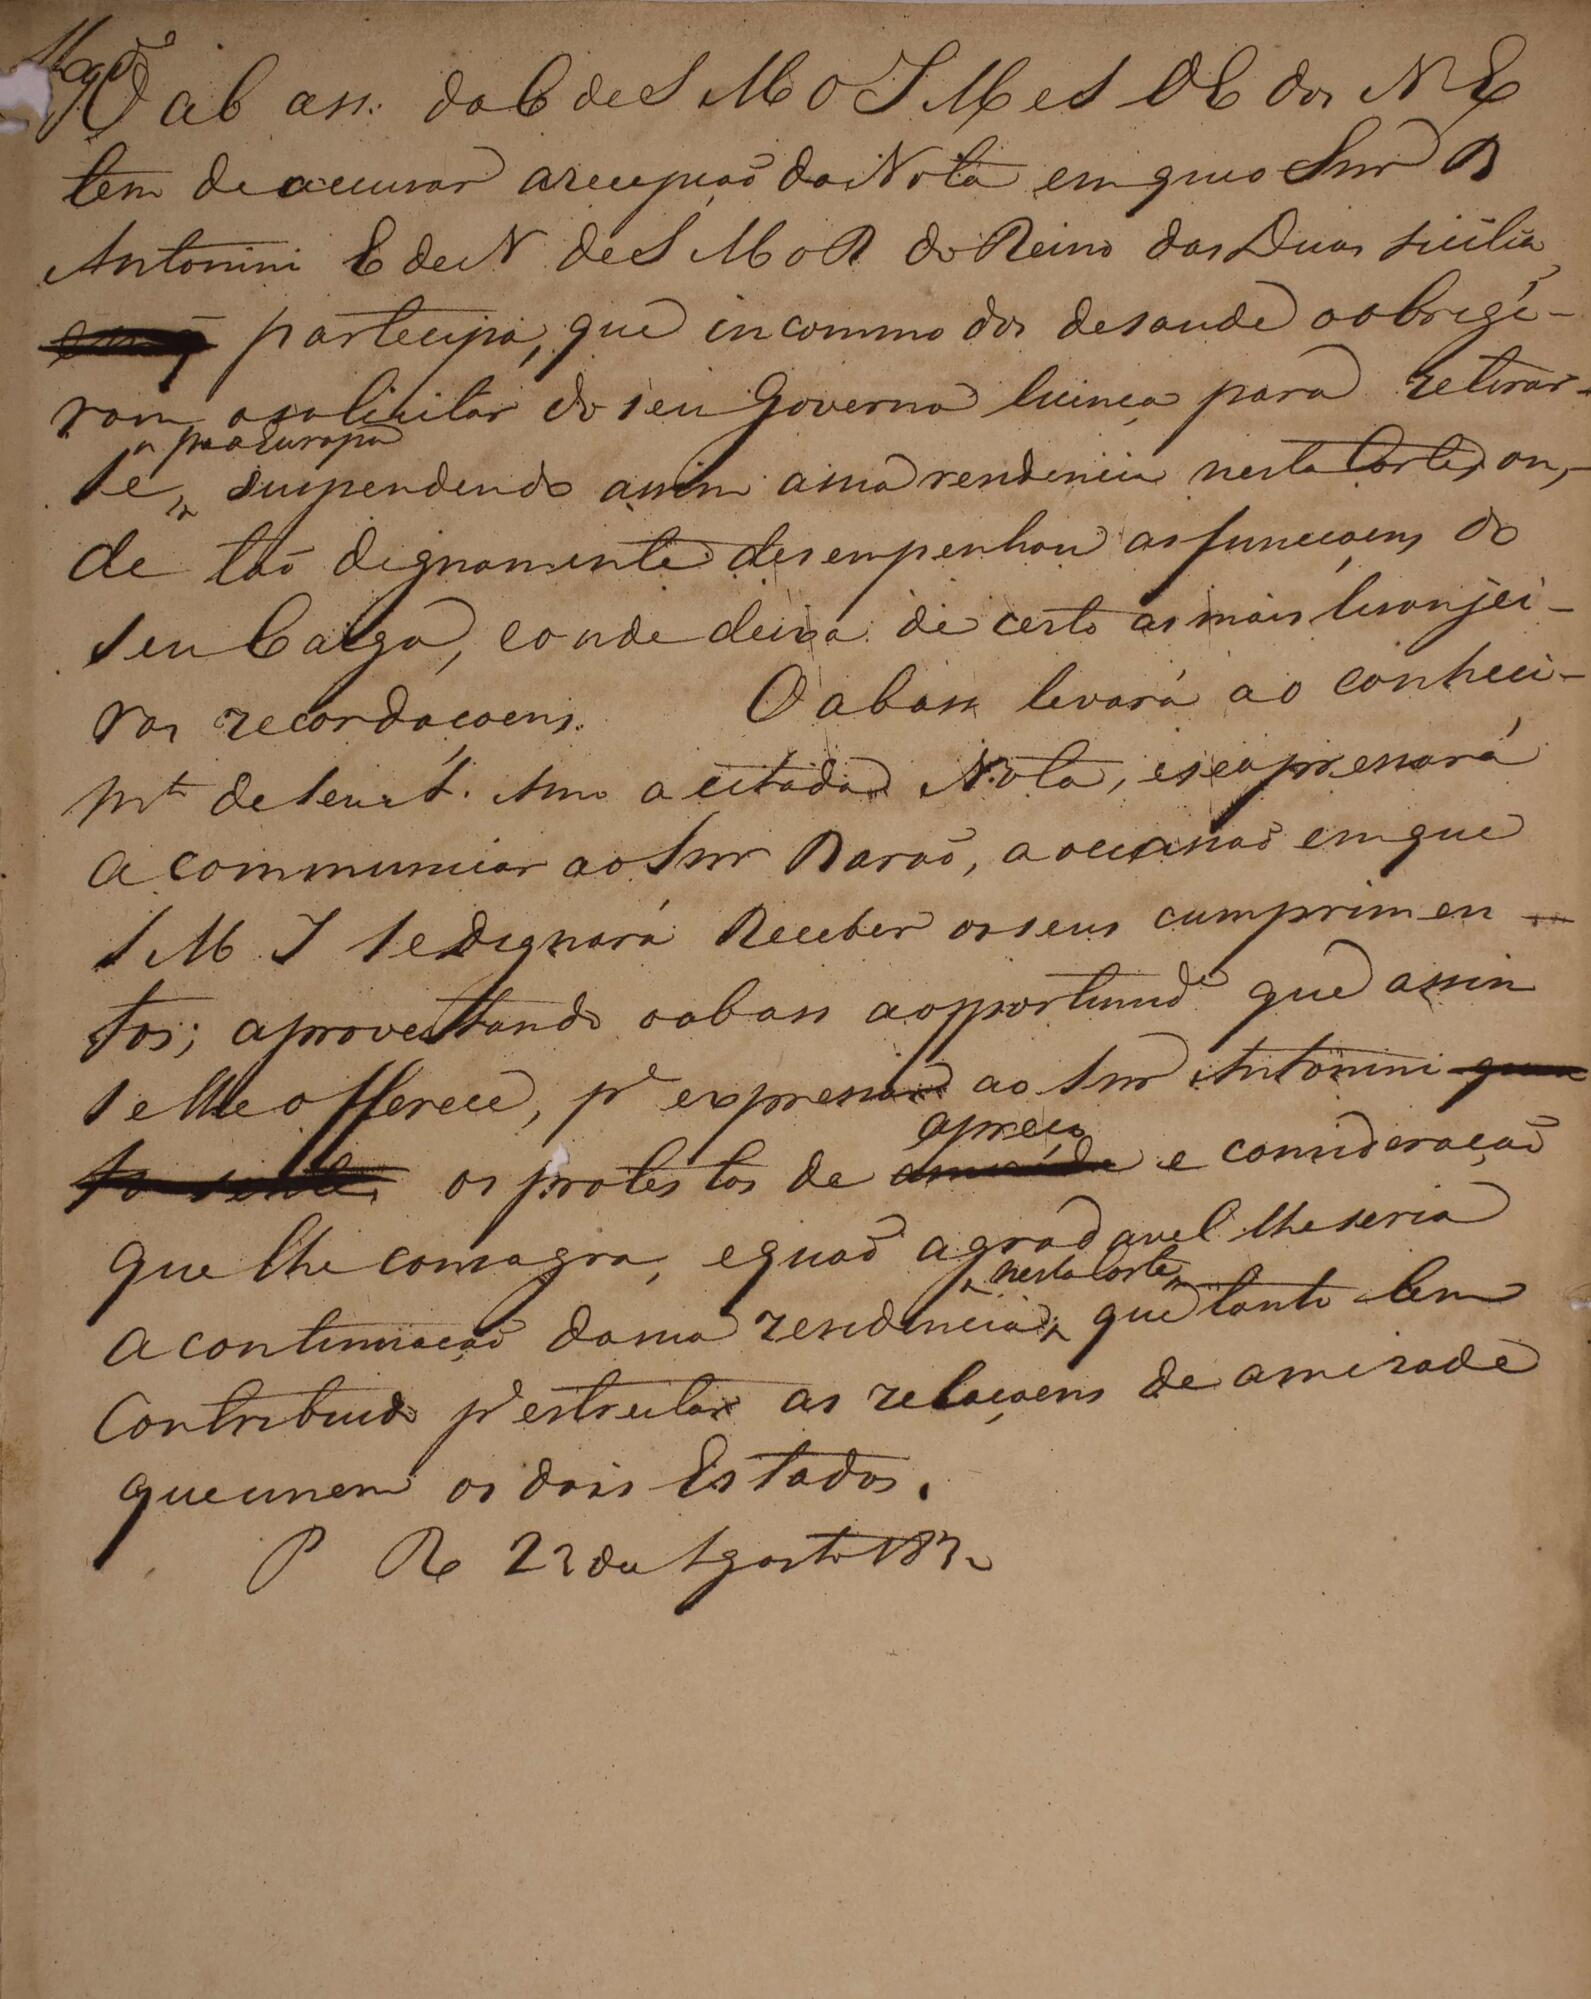 O ab ass. do C de S M O I M e S D E dos N E
tem de accusar a recepçaõ da Nota em que o Snr B
Antonini E de N de S M o R do Reino das Duas Sicilias
participa, que incommodos de saude o obrigá-
ram a solicitar do seu Governo licença para retirar-
pa a Europa
se, suspendendo assim a sua residencia nesta Corte, on-
de taõ dignamente desempenhou as funcçoens do
seu Cargo, e onde deixa de certo as mais lisonjei-
ras recordaçoens. O abass levará ao conheci-
mto de seu A. Amo a citada Nota, e se apressará
a communicar ao Snr Baraõ, a occasiaõ em que
S M I se dignará Receber os seus cumprimen-
tos; aproveitando o abass a opportunide que assim
se lhe offerece, pa expressar ao Snr Antonini
apreço
os protestos de e consideraçaõ
que lhe consagra, e quaõ agradavel lhe seria
nesta Corte
a continuaçaõ da sua residencia, que tanto tem
Contribuido pa estreitar as relaçoens de amizade
que unem os dois Estados.
P R 22 de Agosto 183